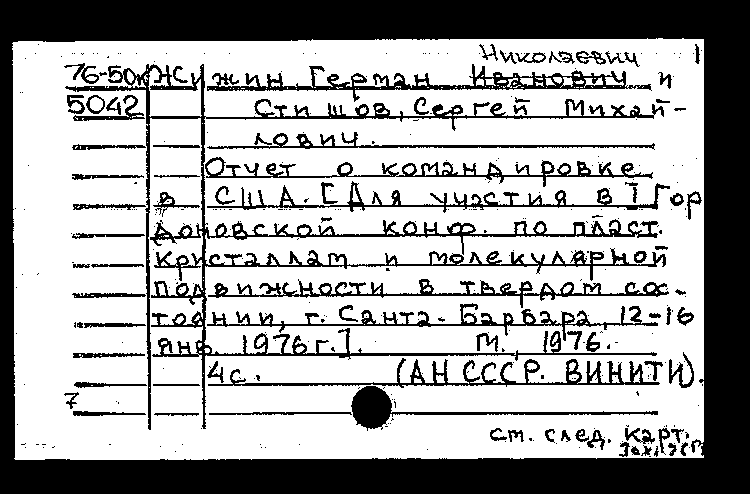 Николаевич 1
76-50к Жижин, Герман Иванович и
5042 Стишов, Сергей Михай-
лович.
Отчет о командировке
в США. [Для участия в I Гор
доновской конф. по пласт.
кристаллам и молекулярной
подвижности в твердом сос-
тоянии, г. Санта-Барбара, 12-16
янв. 1976 г.]. М., 1976.
4с. (АН СССР. ВИНИТИ).
7
см. след. карт.